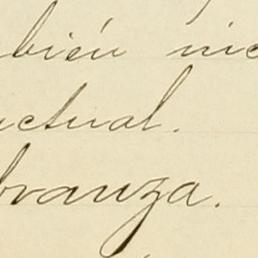 bién nic
ctual.
branza.